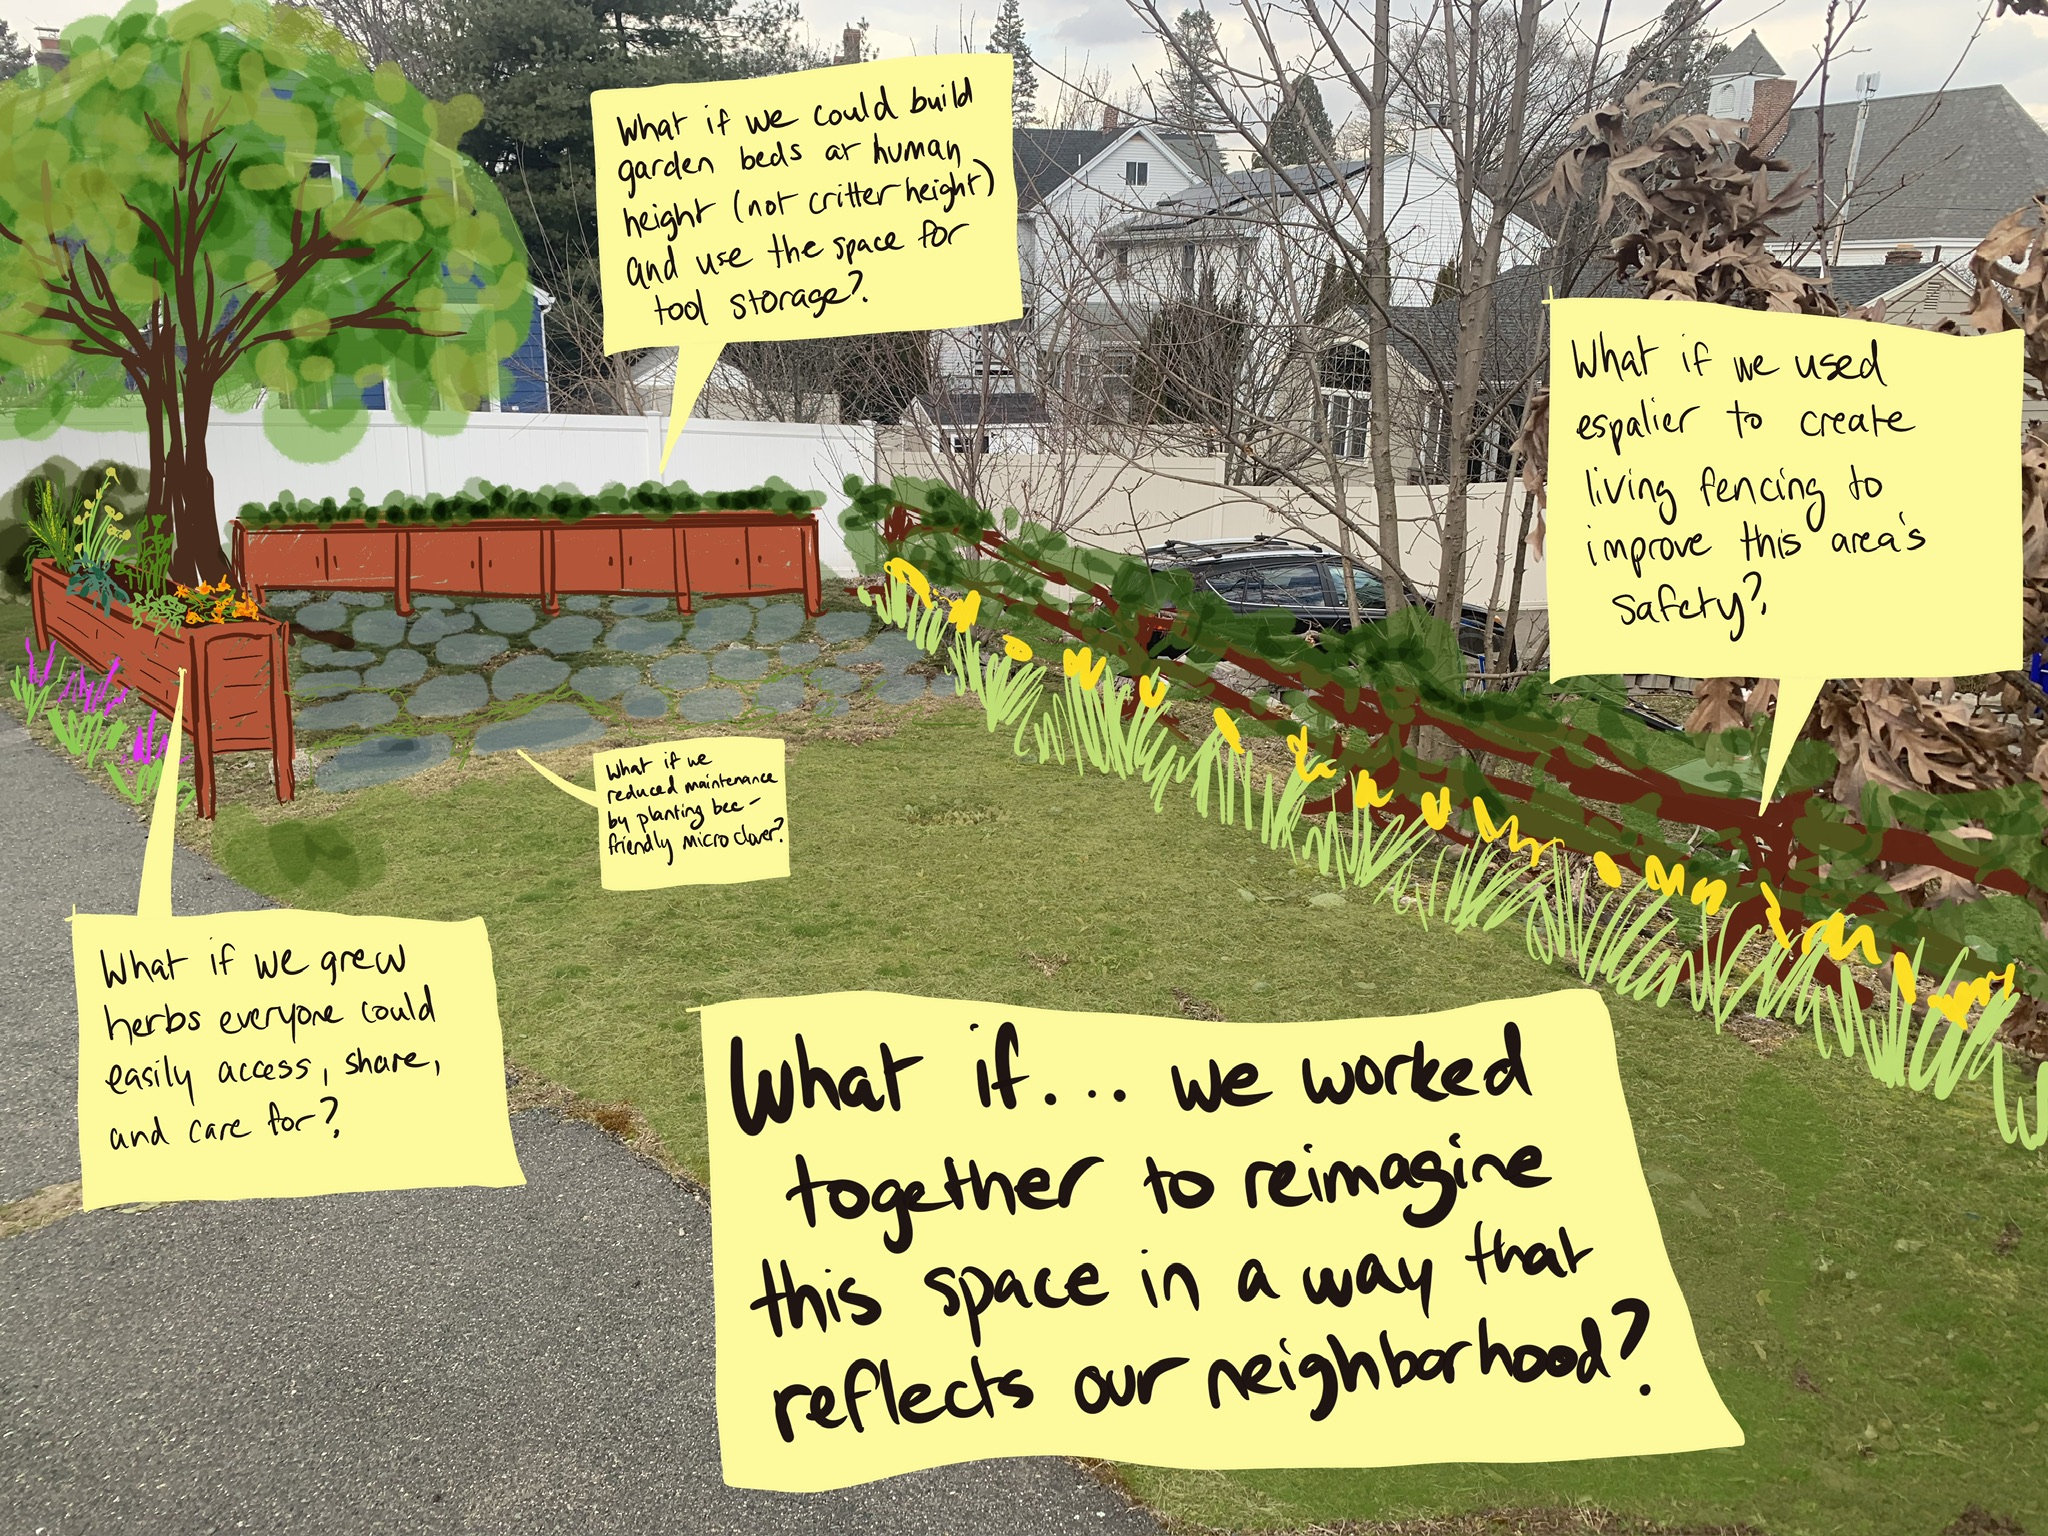 What if we could build
garden beds at human
height (not critter height)
and use the space for
tool storage?
What if we used
espalier to create
living fencing to
improve this area's
safety?
What if we
reduced maintenance
by planting bee-
friendly microclover?
What if we grew
herbs everyone could
easily access, share,
and care for?
What if... we worked
together to reimagine
this space in a way that
reflects our neighborhood?